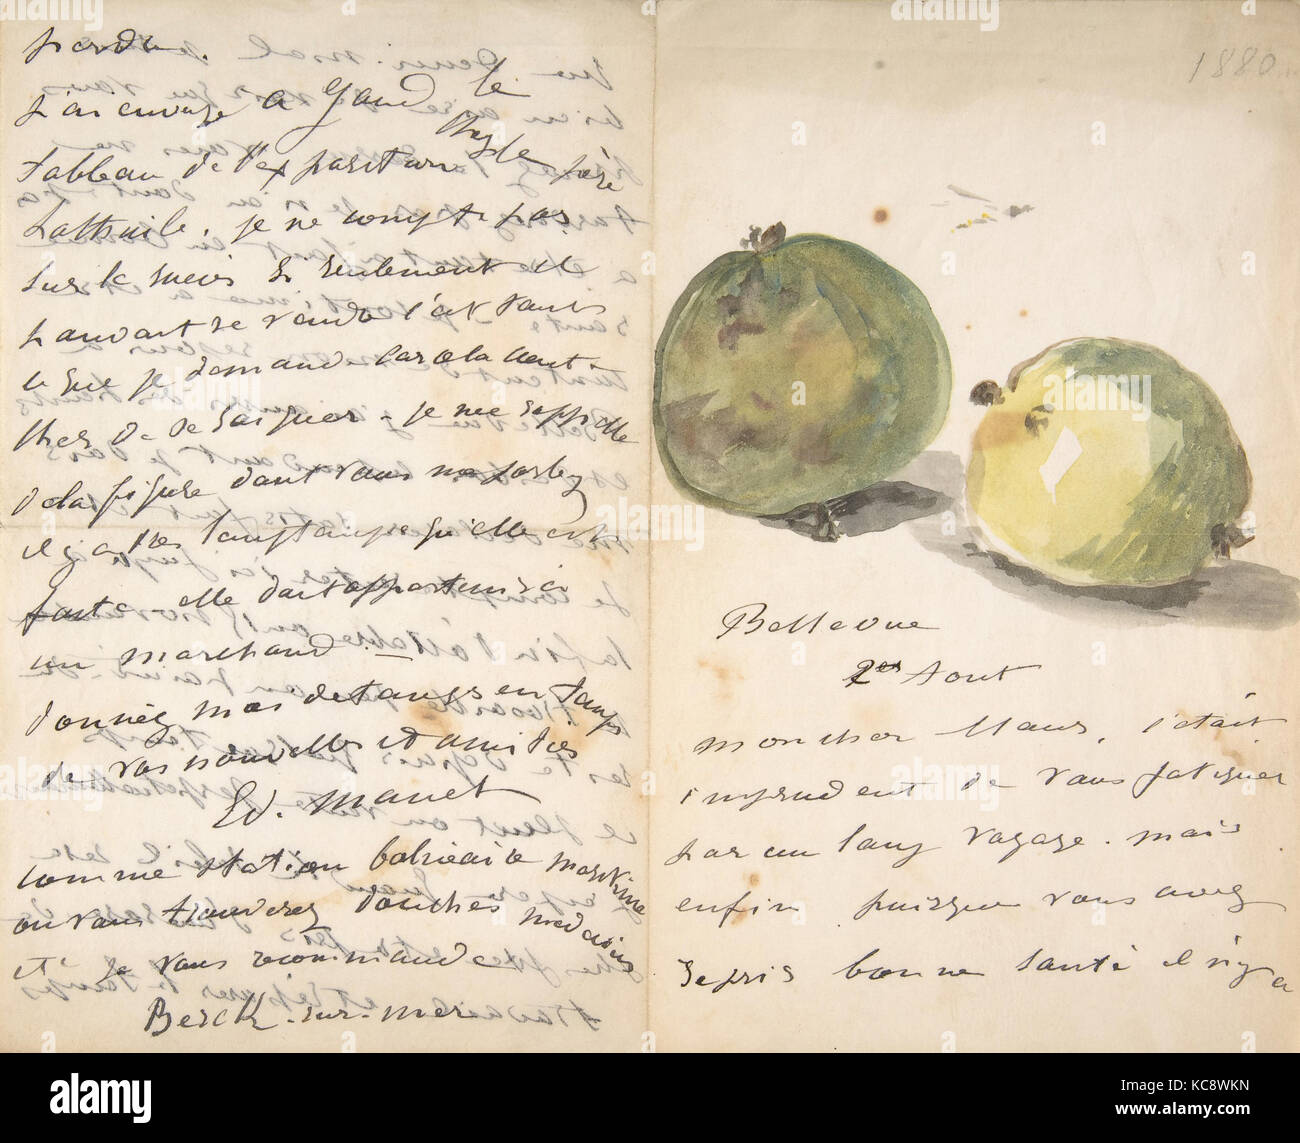 1880
Bellevue
2 Aout
mon cher Maus, c'était
imprudent de vous fatiguer
par un long voyage. mais
enfin puisque vous avez
repris bonne santé il n'y a
perdu.
j'ai envoyé a Gand le
tableau de l'exposition chez le père
Lathuile, je ne compte pas
sur le succès si seulement il
pouvait se vendre c'est tout
ce que je demande car cela
de se saigner - je me rappelle
de la figure dont vous me parlez
il y a très longtemps qu'elle est
faite elle doit appartenir à
un marchand -
donnez moi de temps en temps
de vos nouvelles et amitiés
Ed. Manet
comme station balnéaire maritime
ou vous trouverez douches médecins
etc je vous recommande
Berck-sur-mer
alamy
Image ID: KC8WKN
www.alamy.com